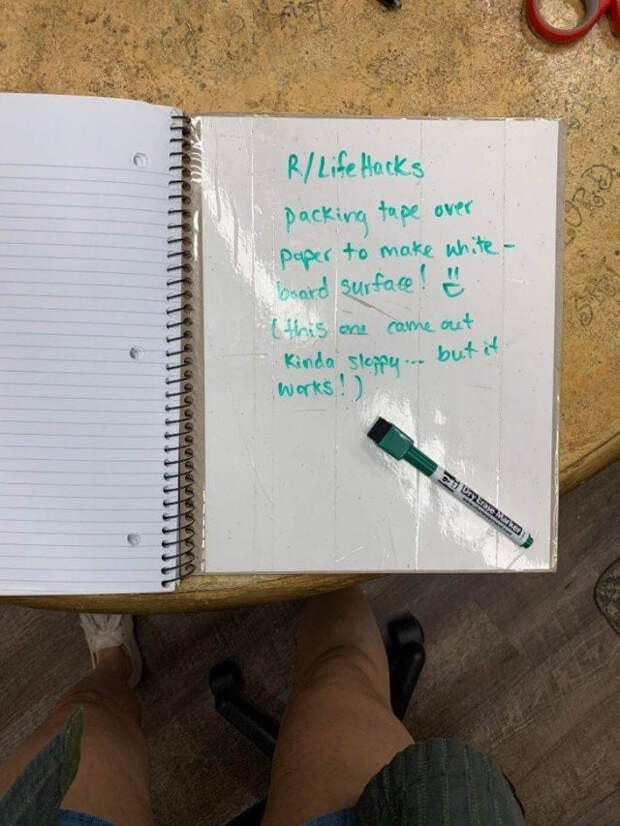 R/LifeHacks
packing tape over
paper to make white-
board surface!
(this one came out
kinda sloppy... but it
works!)
Dry Erase Marker